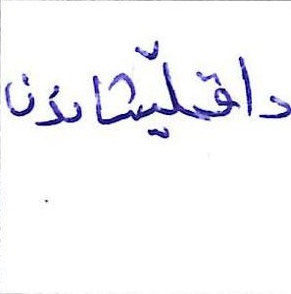 داقلێشاندن